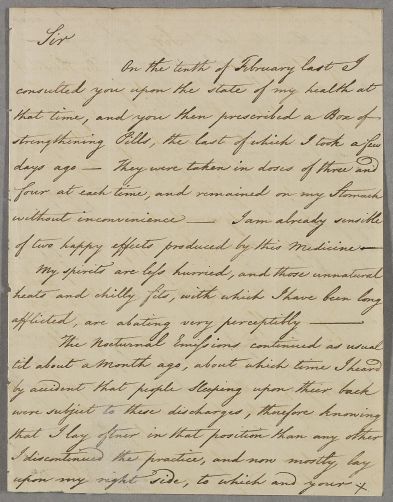 Sir
On the tenth of February last I
consulted you upon the state of my health at
that time, and you then prescribed a Box of
strengthening Pills, the last of which I took a few
days ago — They were taken in doses of three and
four at each time, and remained on my Stomach
without inconvenience — I am already sensible
of two happy effects produced by this Medicine —
My spirits are less hurried, and those unnatural
heats and chilly fits, with which I have been long
afflicted, are abating very perceptibly —
The Nocturnal Emissions continued as usual
til about a Month ago, about which time I heard
by accident that people Sleeping upon their back
were subject to these discharges, therefore knowing
that I lay oftner in that position than any other
I discontinued the practice, and now mostly lay
upon my right side, to which and your